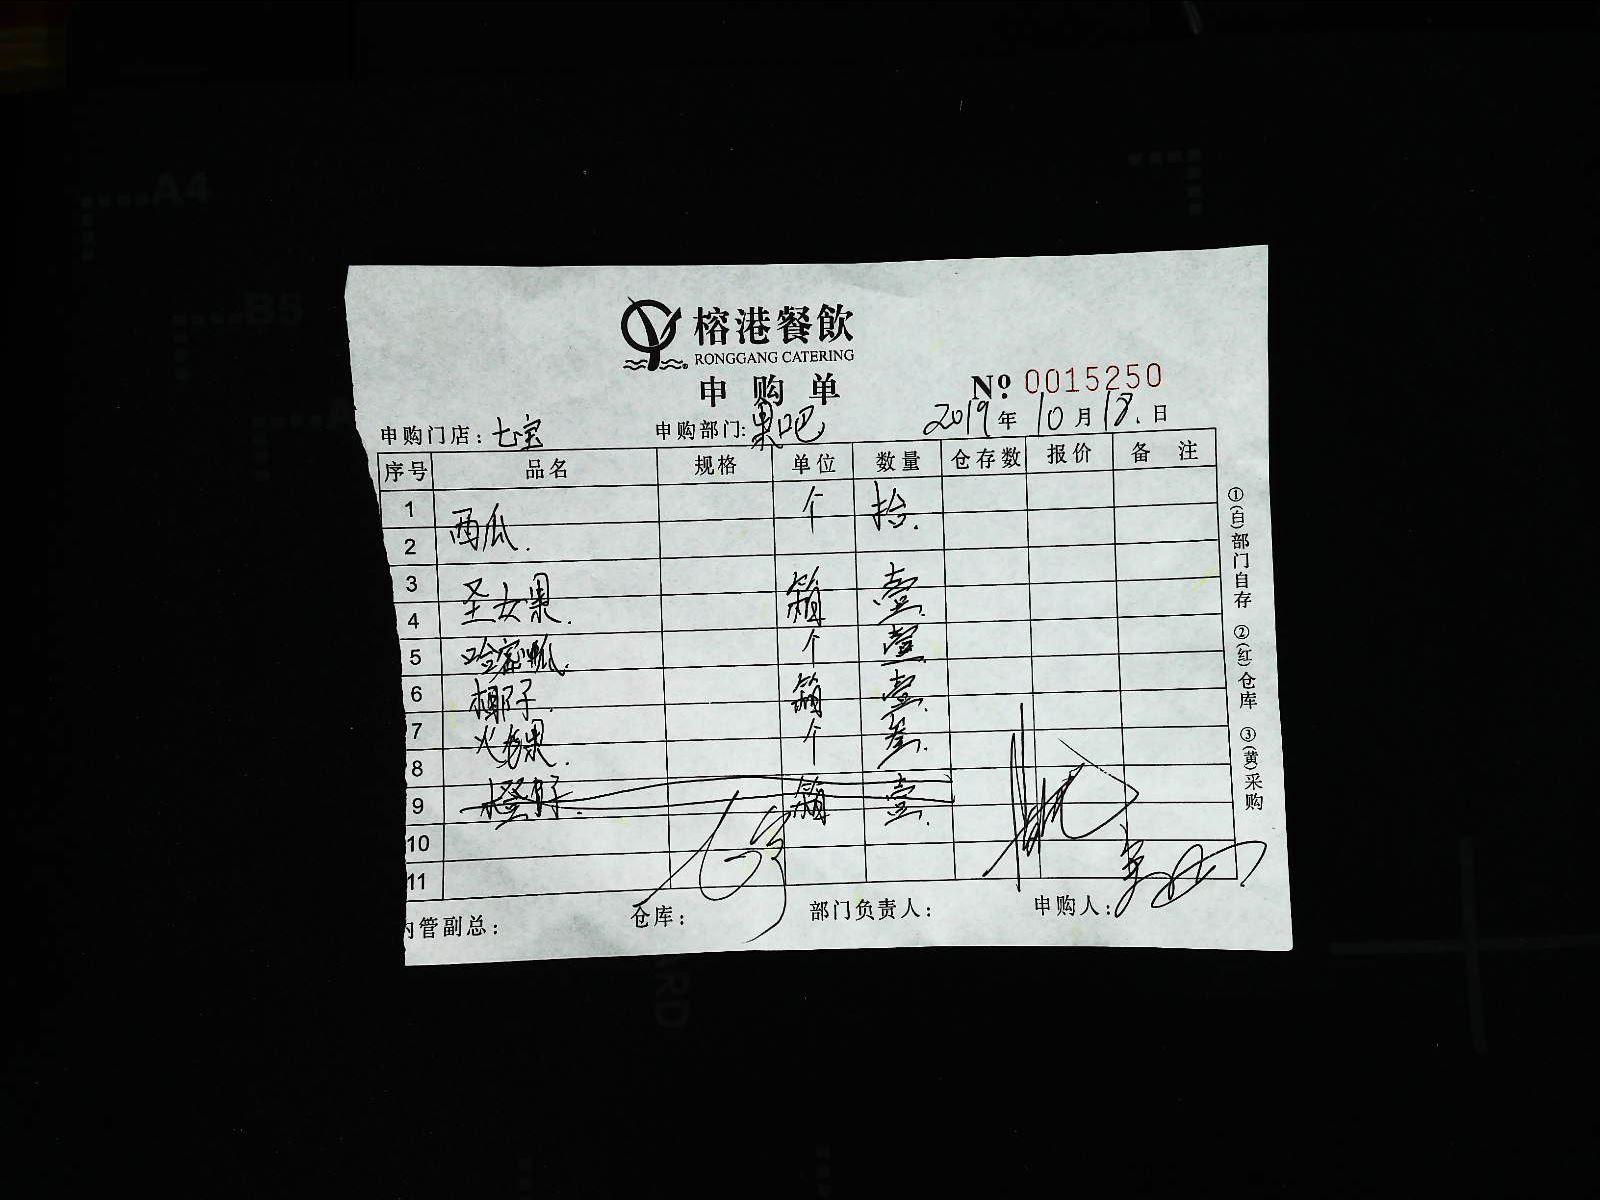 榕港餐飲
RONGGANG CATERING
申购单
№ 0015250
申购门店：七宝 申购部门：果吧 2019年10月18日
序号 品名 规格 单位 数量 仓存数 报价 备注
1 西瓜. 个 拾.
2
3 圣女果. 箱 壹.
4
5 哈密瓜. 个 壹.
6 椰子. 箱 壹.
7 火龙果. 个 叁.
8
9 橙子. 箱 壹.
10
11
内管副总： 仓库： 部门负责人： 申购人：
①(白)部门自存 ②(红)仓库 ③(黄)采购
A4
B5